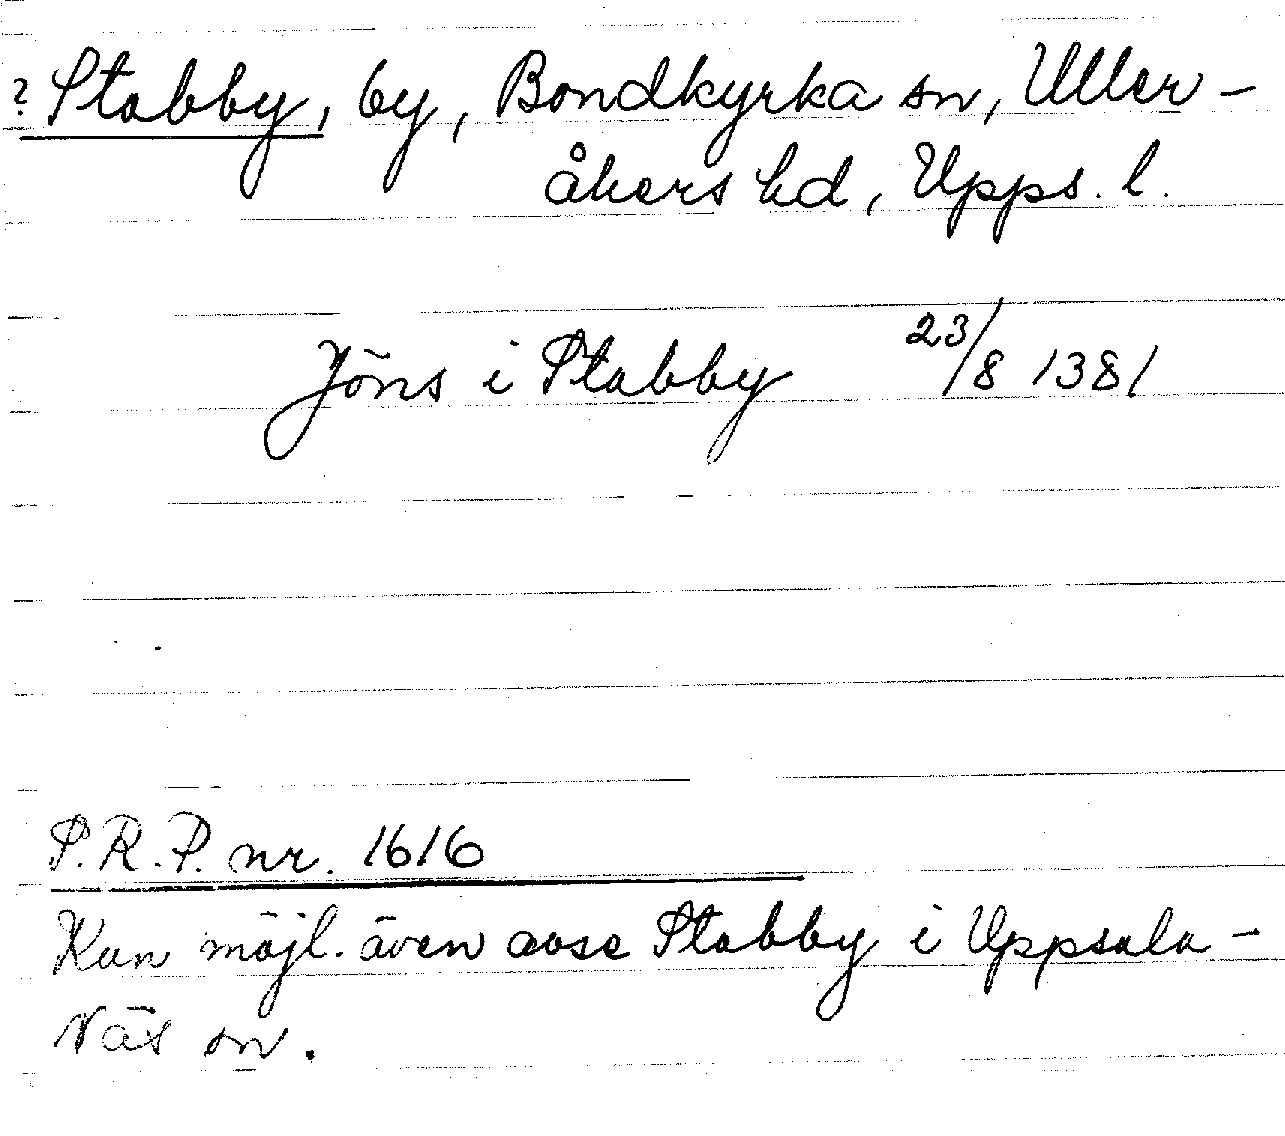 ? Stabby, by, Bondkyrka sn, Uller-
åkers hd, Upps. l.
Jöns i Stabby 23/8 1381
S.R.P. nr. 1616
Kan möjl. även avse Stabby i Uppsala-
Näs sn.